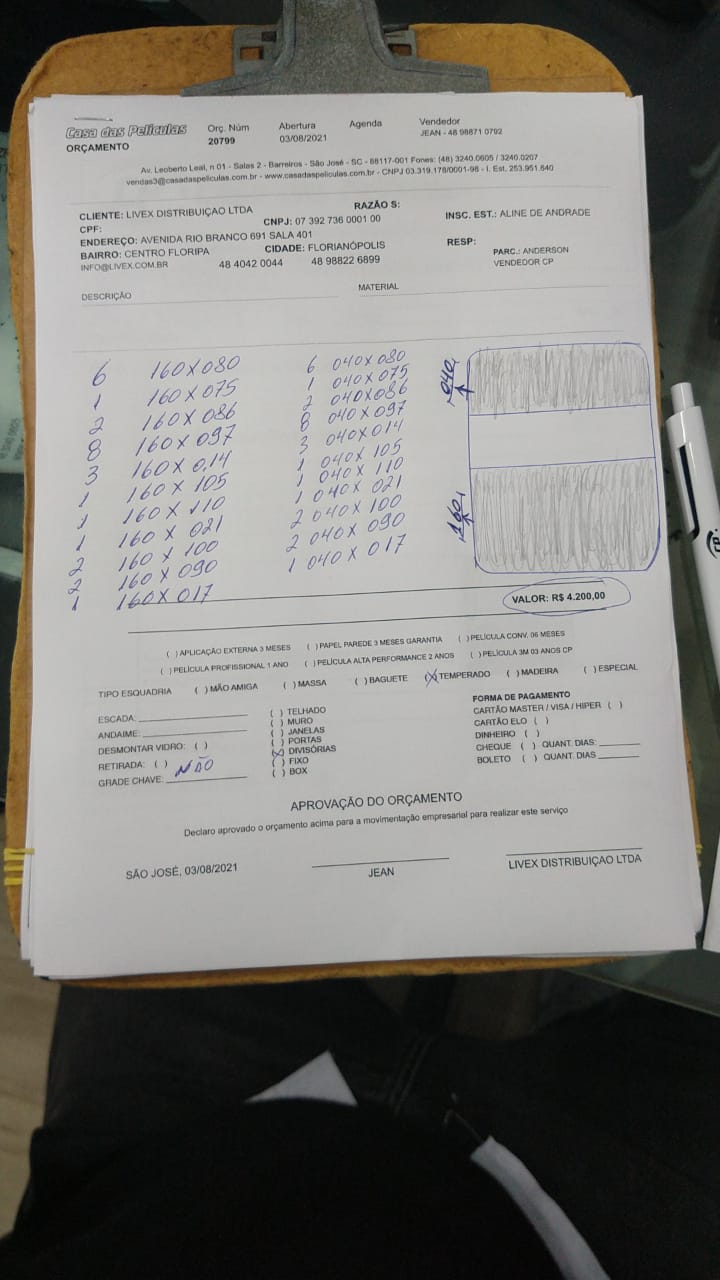 Casa das Películas
ORÇAMENTO
Orç. Núm
20799
Abertura
03/08/2021
Agenda
Vendedor
JEAN - 48 98871 0792
Av. Leoberto Leal, n 01 - Salas 2 - Barreiros - São José - SC - 88117-001 Fones: (48) 3240.0605 / 3240.0207
vendas3@casadaspeliculas.com.br - www.casadaspeliculas.com.br - CNPJ 03.319.178/0001-98 - I. Est. 253.951.640
CLIENTE: LIVEX DISTRIBUIÇAO LTDA RAZÃO S:
CPF: CNPJ: 07 392 736 0001 00 INSC. EST.: ALINE DE ANDRADE
ENDEREÇO: AVENIDA RIO BRANCO 691 SALA 401
BAIRRO: CENTRO FLORIPA CIDADE: FLORIANÓPOLIS RESP:
INFO@LIVEX.COM.BR 48 4042 0044 48 98822 6899 PARC.: ANDERSON
VENDEDOR CP
DESCRIÇÃO MATERIAL
6 160X080 6 040X080
1 160X075 1 040X075
2 160X086 2 040X086
8 160X097 8 040X097
3 160X0.14 3 040X014
1 160X105 1 040X105
1 160X110 1 040X110
1 160X021 1 040X021
2 160X100 2 040X100
2 160X090 2 040X090
1 160X017 1 040X017
040
160
VALOR: R$ 4.200,00
( ) APLICAÇÃO EXTERNA 3 MESES ( ) PAPEL PAREDE 3 MESES GARANTIA ( ) PELÍCULA CONV. 06 MESES
( ) PELÍCULA PROFISSIONAL 1 ANO ( ) PELÍCULA ALTA PERFORMANCE 2 ANOS ( ) PELÍCULA 3M 03 ANOS CP
TIPO ESQUADRIA ( ) MÃO AMIGA ( ) MASSA ( ) BAGUETE (X) TEMPERADO ( ) MADEIRA ( ) ESPECIAL
ESCADA:
ANDAIME:
DESMONTAR VIDRO: ( )
RETIRADA: ( ) NÃO
GRADE CHAVE:
( ) TELHADO
( ) MURO
( ) JANELAS
( ) PORTAS
(X) DIVISÓRIAS
( ) FIXO
( ) BOX
FORMA DE PAGAMENTO
CARTÃO MASTER / VISA / HIPER ( )
CARTÃO ELO ( )
DINHEIRO ( )
CHEQUE ( ) QUANT. DIAS:
BOLETO ( ) QUANT. DIAS
APROVAÇÃO DO ORÇAMENTO
Declaro aprovado o orçamento acima para a movimentação empresarial para realizar este serviço
SÃO JOSÉ, 03/08/2021 JEAN LIVEX DISTRIBUIÇAO LTDA